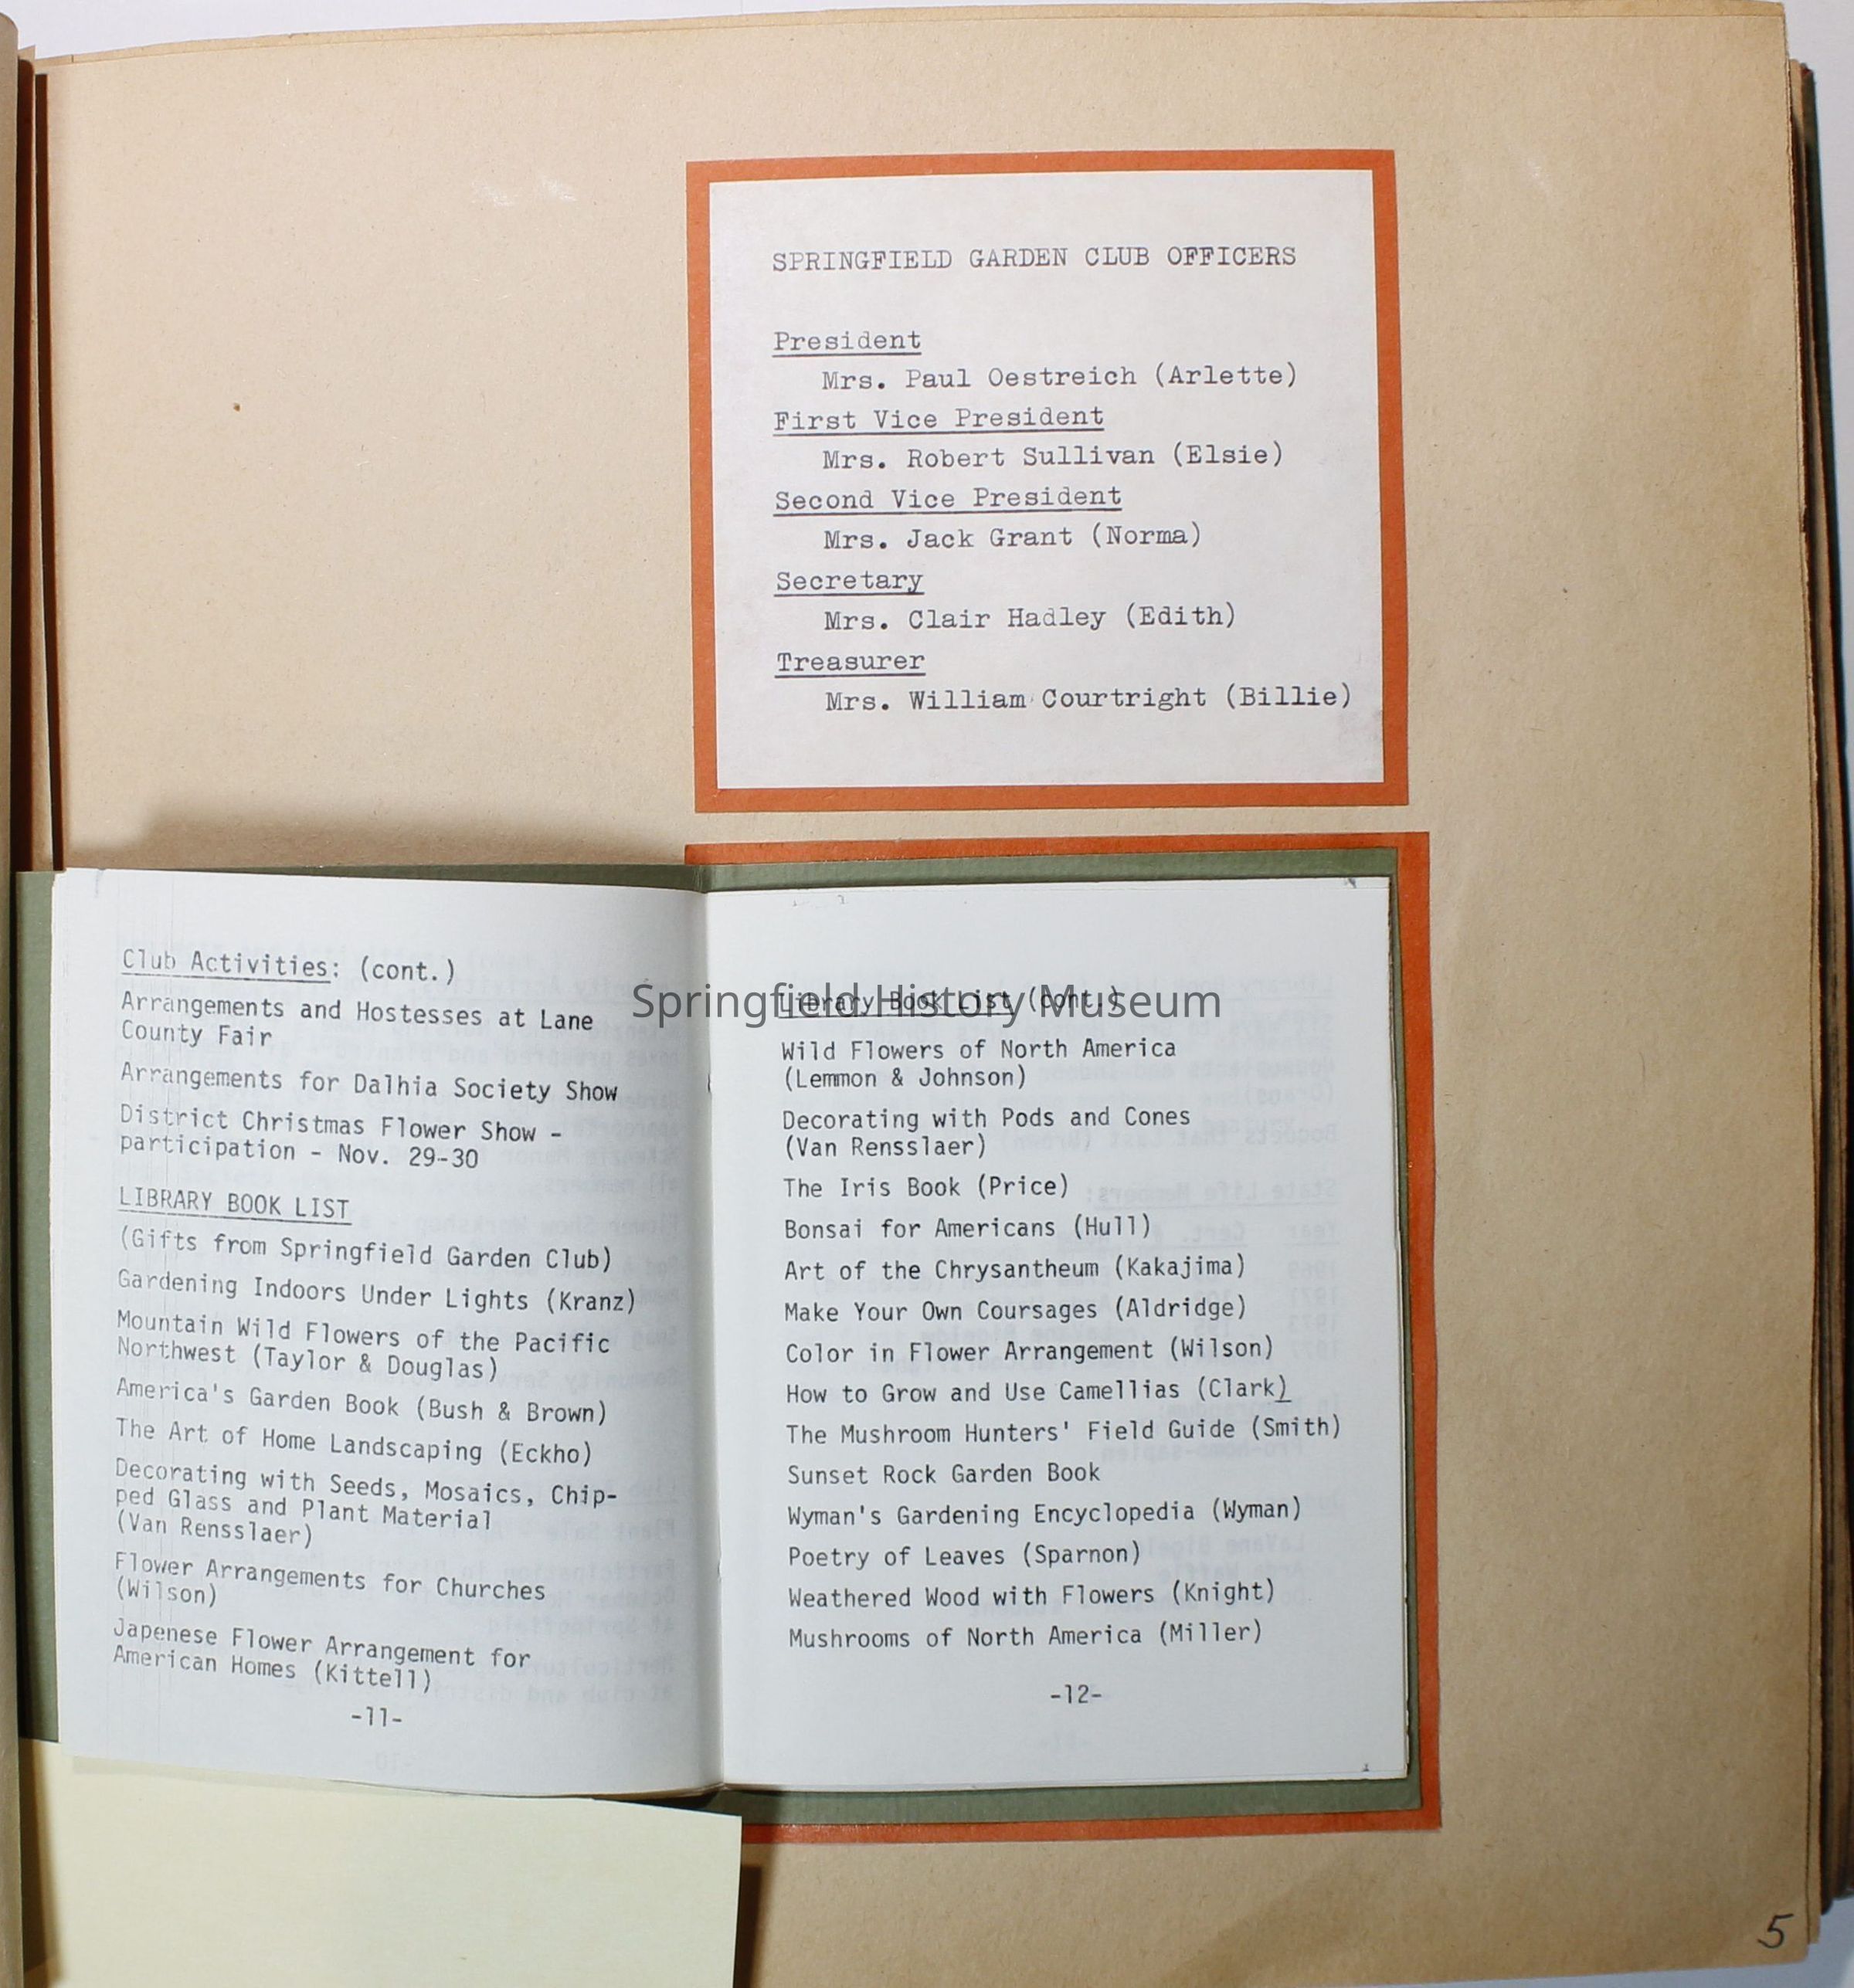 SPRINGFIELD GARDEN CLUB OFFICERS
President
Mrs. Paul Oestreich (Arlette)
First Vice President
Mrs. Robert Sullivan (Elsie)
Second Vice President
Mrs. Jack Grant (Norma)
Secretary
Mrs. Clair Hadley (Edith)
Treasurer
Mrs. William Courtright (Billie)
Club Activities: (cont.)
Arrangements and Hostesses at Lane
County Fair
Arrangements for Dalhia Society Show
District Christmas Flower Show -
participation - Nov. 29-30
LIBRARY BOOK LIST
(Gifts from Springfield Garden Club)
Gardening Indoors Under Lights (Kranz)
Mountain Wild Flowers of the Pacific
Northwest (Taylor & Douglas)
America's Garden Book (Bush & Brown)
The Art of Home Landscaping (Eckho)
Decorating with Seeds, Mosaics, Chip-
ped Glass and Plant Material
(Van Rensslaer)
Flower Arrangements for Churches
(Wilson)
Japenese Flower Arrangement for
American Homes (Kittell)
-11-
Springfield History Museum
Library Book List (cont.)
Wild Flowers of North America
(Lemmon & Johnson)
Decorating with Pods and Cones
(Van Rensslaer)
The Iris Book (Price)
Bonsai for Americans (Hull)
Art of the Chrysantheum (Kakajima)
Make Your Own Coursages (Aldridge)
Color in Flower Arrangement (Wilson)
How to Grow and Use Camellias (Clark)
The Mushroom Hunters' Field Guide (Smith)
Sunset Rock Garden Book
Wyman's Gardening Encyclopedia (Wyman)
Poetry of Leaves (Sparnon)
Weathered Wood with Flowers (Knight)
Mushrooms of North America (Miller)
-12-
5